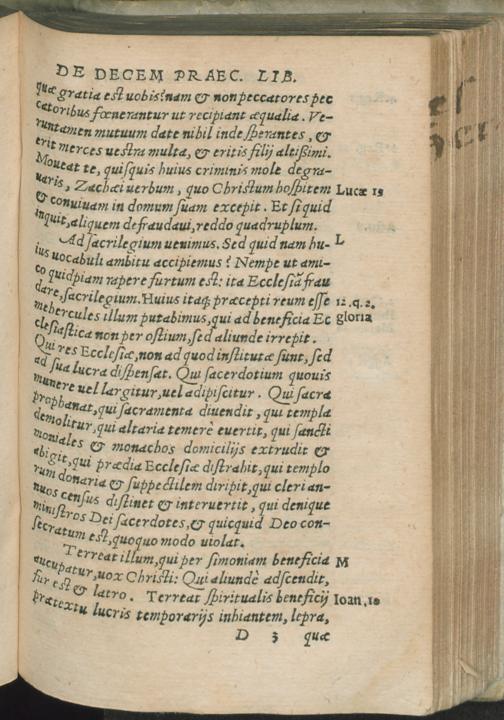 DE DECEM PRAEC. LIB.
quæ gratia est uobis? nam & non peccatores pec
catoribus fœnerantur ut recipiant æqualia. Ve-
runtamen mutuum date nihil inde sperantes, &
erit merces uestra multa, & eritis filij altißimi.
Moueat te, quisquis huius criminis mole degra-
uaris, Zachæi uerbum, quo Christum hospitem Lucæ 19
& conuiuam in domum suam excepit. Et si quid
inquit, aliquem defraudaui, reddo quadruplum.
Ad sacrilegium uenimus. Sed quid nam hu- L
ius uocabuli ambitu accipiemus? Nempe ut ami-
co quidpiam rapere furtum est: ita Ecclesiã frau
dare, sacrilegium. Huius itaq; præcepti reum esse 12.q.2.
mehercules illum putabimus, qui ad beneficia Ec gloria
clesiastica non per ostium, sed aliunde irrepit.
Qui res Ecclesiæ, non ad quod institutæ sunt, sed
ad sua lucra dispensat. Qui sacerdotium quouis
munere uel largitur, uel adipiscitur. Qui sacra
prophanat, qui sacramenta diuendit, qui templa
demolitur, qui altaria temerè euertit, qui sancti
moniales & monachos domicilijs extrudit &
abigit, qui prædia Ecclesiæ distrahit, qui templo
rum donaria & suppectilem diripit, qui cleri an-
nuos census distinet & interuertit, qui denique
ministros Dei sacerdotes, & quicquid Deo con-
secratum est, quoquo modo uiolat.
Terreat illum, qui per simoniam beneficia M
aucupatur, uox Christi: Qui aliundè adscendit,
fur est & latro. Terreat spiritualis beneficij Ioan.10
prætextu lucris temporarijs inhiantem, lepra,
D 3 quæ